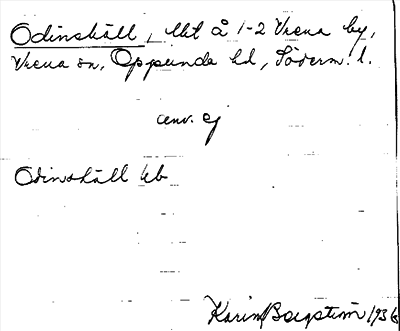 Odinskäll, lht å 1-2 Vrena by,
Vrena sn, Oppunda hd, Söderm. l.
anv. ej
Odinskäll kb
Karin Bergström 1936